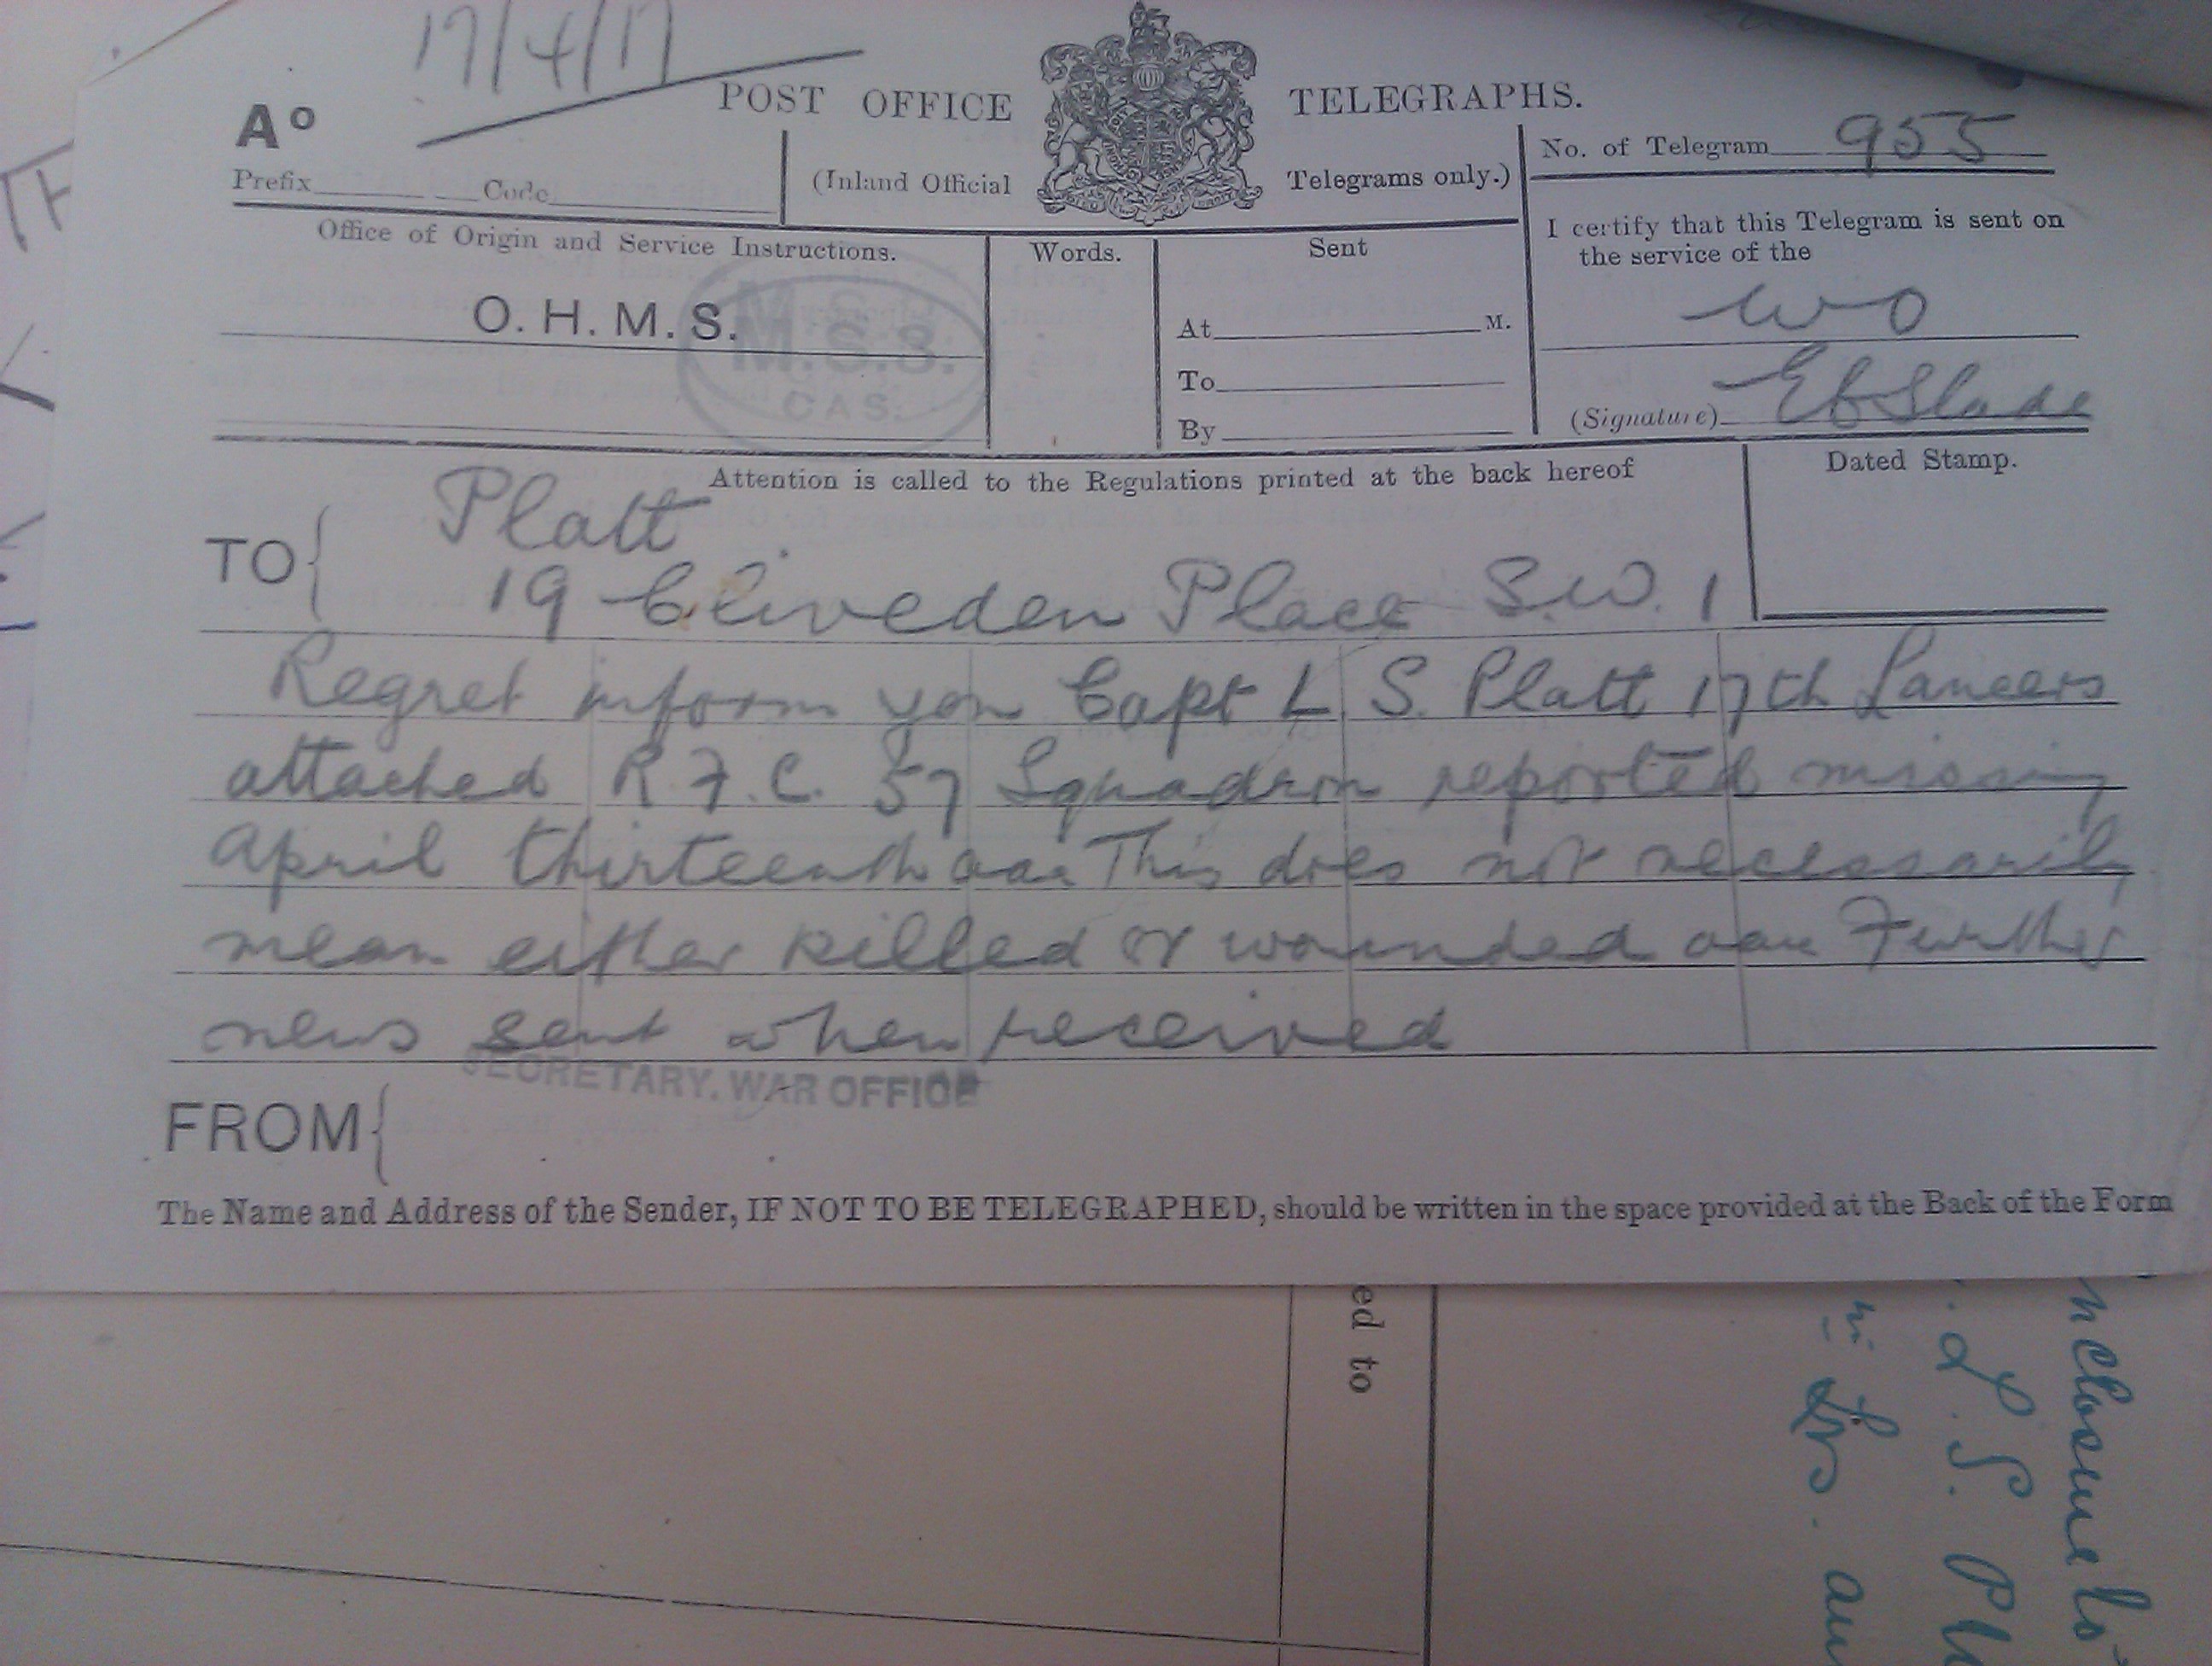 17/4/17
POST OFFICE TELEGRAPHS.
Ao
Prefix Code
(Inland Official Telegrams only.)
No. of Telegram 955
Office of Origin and Service Instructions.
Words.
Sent
I certify that this Telegram is sent on
the service of the
O. H. M. S.
M.S.3.
CAS.
At M.
To
By
WO
(Signature) Slade
Attention is called to the Regulations printed at the back hereof
Dated Stamp.
TO
Platt
19 Cliveden Place S.W. 1
Regret inform you Capt L. S. Platt 17th Lancers
attached R.F.C. 57 Squadron reported missing
April thirteenth aaa This does not necessarily
mean either killed or wounded aaa Further
news sent when received
SECRETARY. WAR OFFICE
FROM
The Name and Address of the Sender, IF NOT TO BE TELEGRAPHED, should be written in the space provided at the Back of the Form
ed to
L. S.